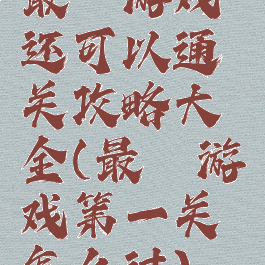 最 游戏
还可以通
关攻略大
全(最 游
戏第一关
怎么过)